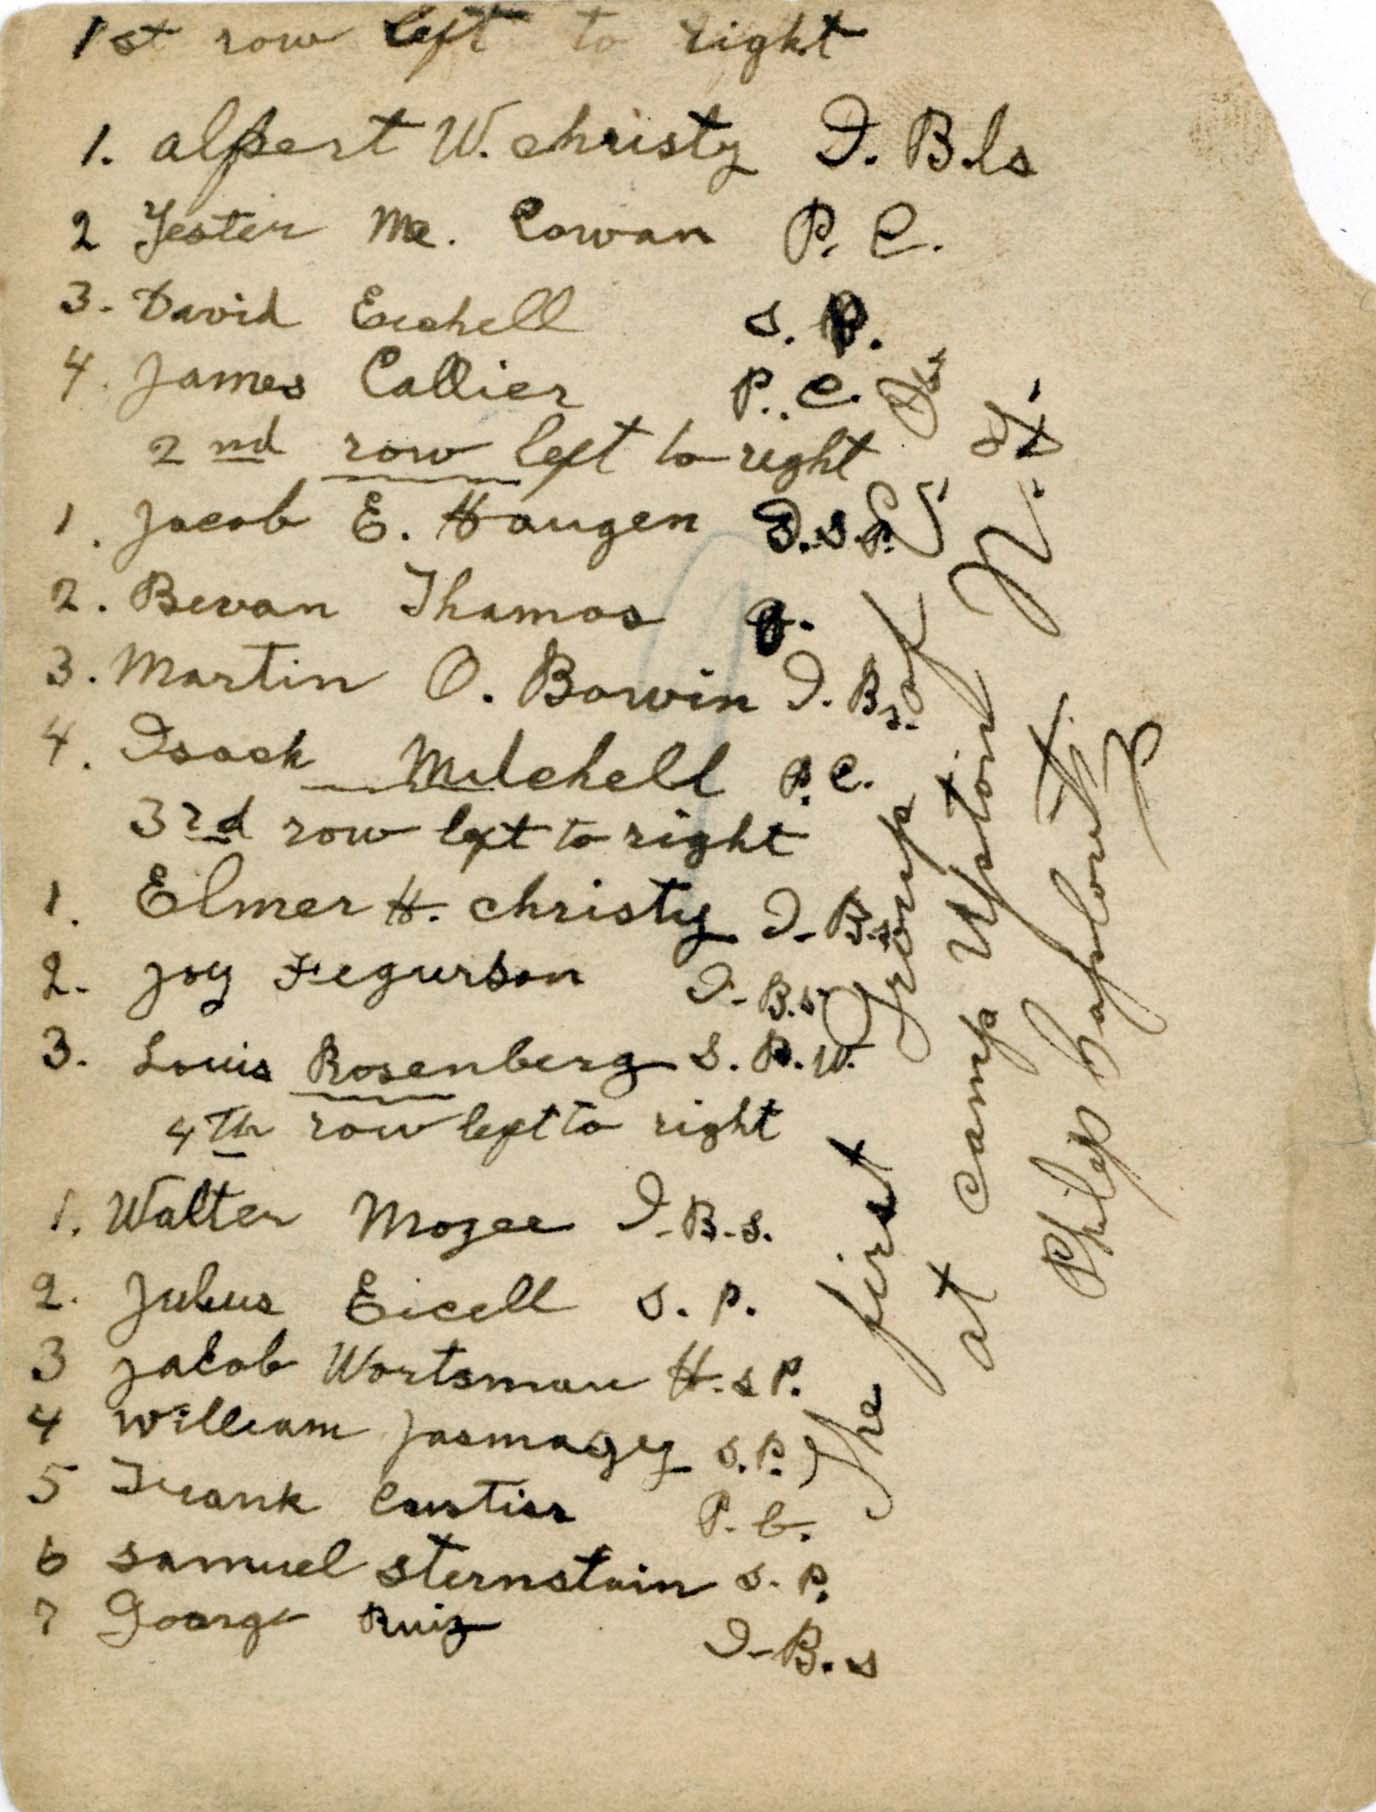 1st row left to right
1. alpert W. christy I. B.ls
2 Jester Mc. Cowan P. C.
3. David Eichell S. P.
4. James Callier P. C.
2nd row left to right
1. Jacob E. Haugen I. S. P.
2. Bevan Thamos
3. Martin O. Bowin I. Bs.
4. Isack Mitchell P. C.
3rd row left to right
1. Elmer H. christy I-Bs.
2. Joy Fegurson I-B.s
3. Louis Rosenberg S. P. W.
4th row left to right
1. Walter Mozee I-B-s.
2. Julius Eicell S. P.
3 Jacob Wortsman H. s P.
4 William Jasmagy S. P.
5 Frank Custis P. C.
6 Samuel Sternstain S. P.
7 Goorge Ruiz I-B.s
The first Group of C. Os
at camp Upston N. Y.
Philip Caplowitz